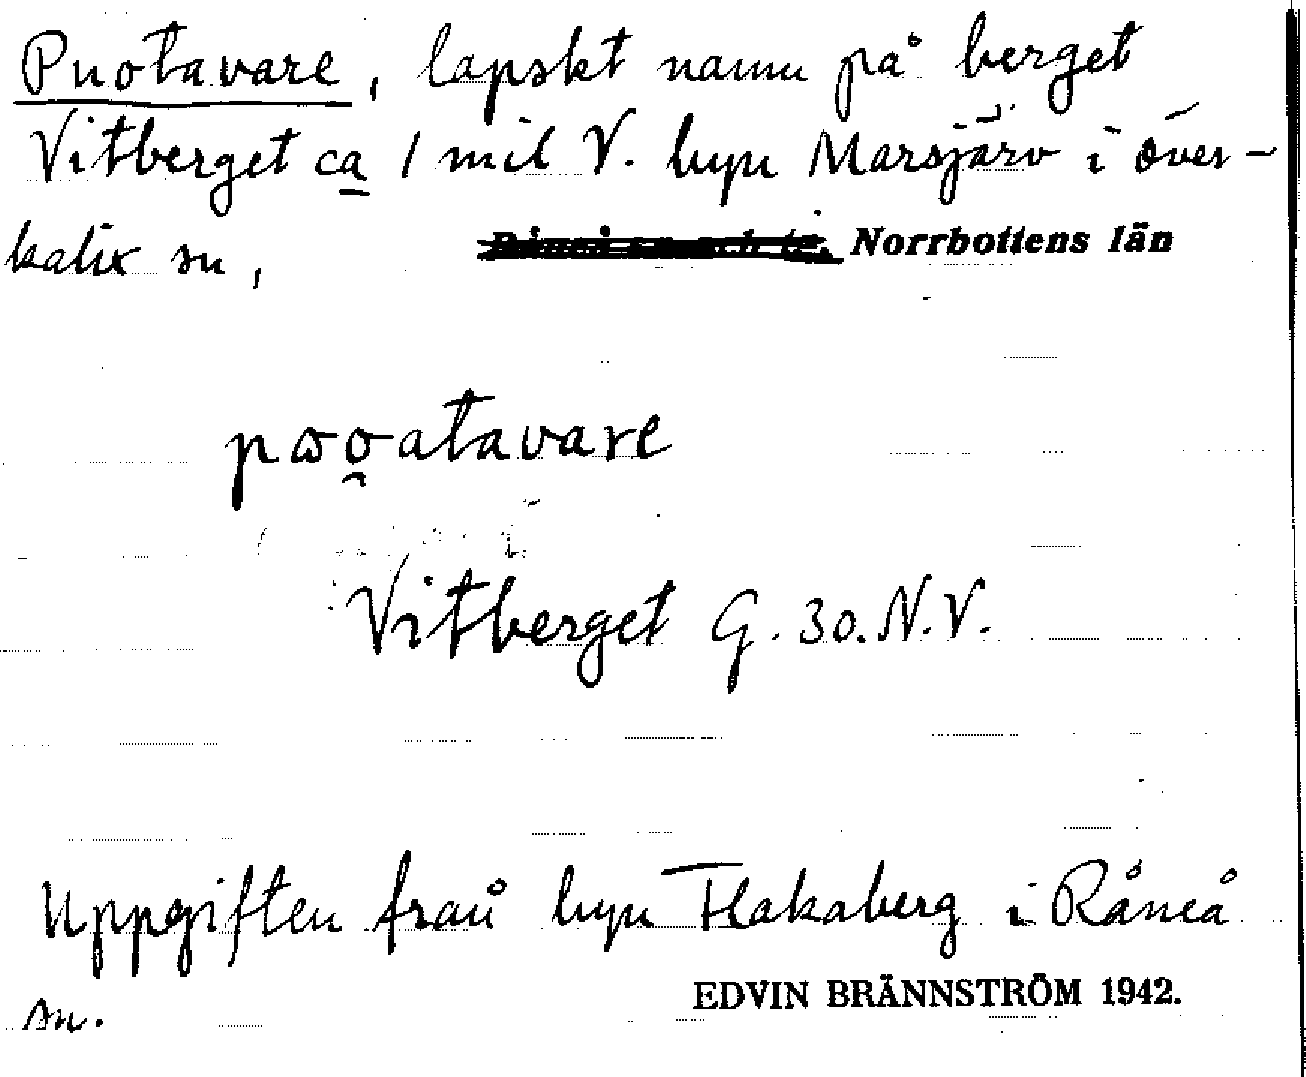 Puotavare, lapskt namn på berget
Vitberget ca 1 mil V. byn Marsjärv i över-
kalix sn,
Råneå sn och tg. Norrbottens län
pωo̯atavare
Vitberget G. 30. N.V.
Uppgiften från byn Flakaberg i Råneå
sn.
EDVIN BRÄNNSTRÖM 1942.